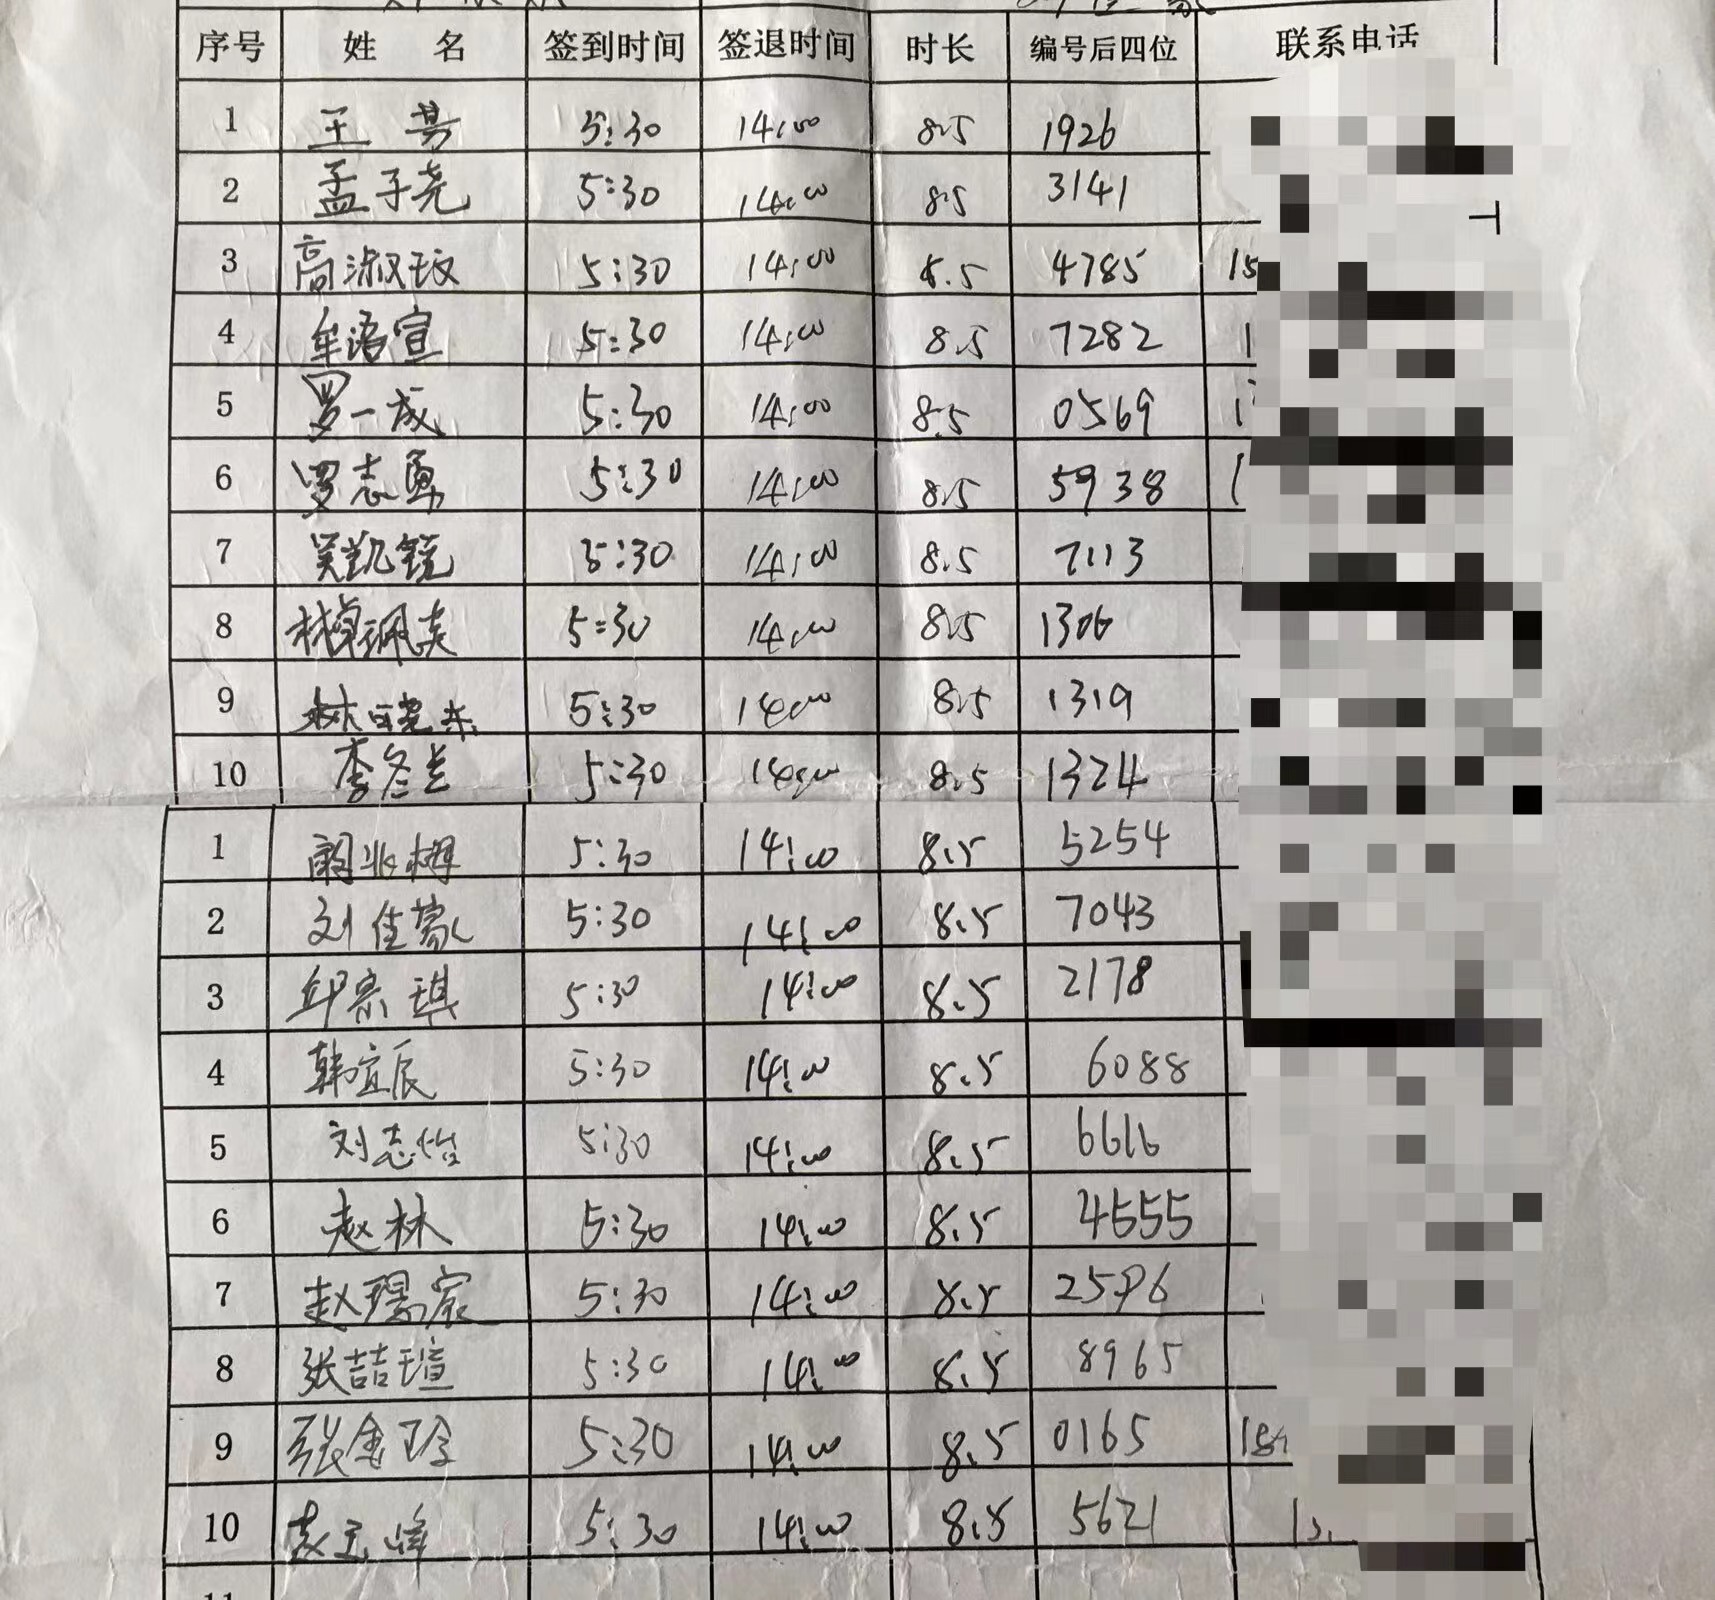 序号 姓 名 签到时间 签退时间 时长 编号后四位 联系电话
1 王芳 5:30 14:00 8.5 1926
2 孟子尧 5:30 14:00 8.5 3141
3 高淑玟 5:30 14:00 8.5 4785 15
4 牟语宣 5:30 14:00 8.5 7282 1
5 罗一成 5:30 14:00 8.5 0569 1
6 罗志勇 5:30 14:00 8.5 5938 1
7 吴凯镜 5:30 14:00 8.5 7113
8 5:30 14:00 8.5 1306
9 林晓东 5:30 14:00 8.5 1319
10 李冬兰 5:30 14:00 8.5 1324
1 5:30 14:00 8.5 5254
2 刘佳豪 5:30 14:00 8.5 7043
3 邱宗琪 5:30 14:00 8.5 2178
4 韩宜辰 5:30 14:00 8.5 6088
5 刘志怡 5:30 14:00 8.5 6616
6 赵林 5:30 14:00 8.5 4555
7 5:30 14:00 8.5 2596
8 张喆瑄 5:30 14:00 8.5 8965
9 张金玲 5:30 14:00 8.5 0165 18
10 袁玉峰 5:30 14:00 8.5 5621 13
11